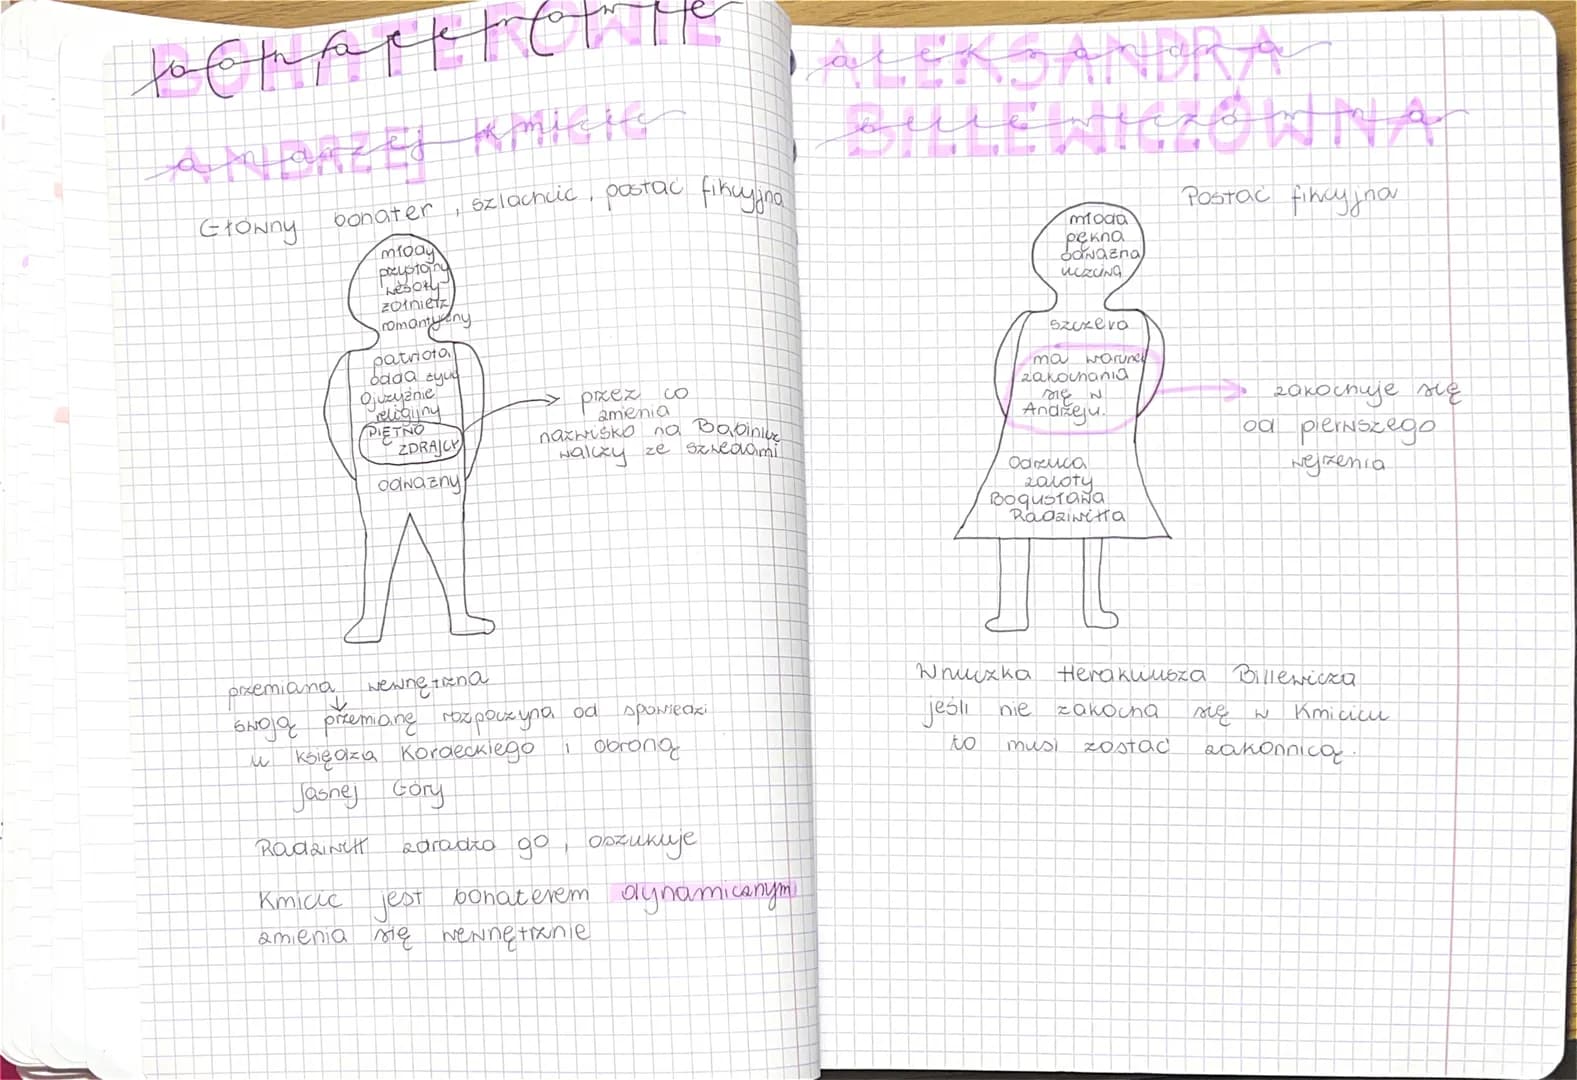 BOHATEROWIE
bohaterowie
ANDRZEJ KMICIC
Główny bohater, szlachcic, postać fikcyjna
młody
przystojny
wesoły
żołnierz
romantyczny
patriota
odda życie
Ojczyźnie
religijny
PIĘTNO
ZDRAJCY
odważny
przez co
zmienia
nazwisko na Babinicz
walczy ze szwedami
przemiana wewnętrzna
↓
swoją przemianę rozpoczyna od spowiedzi
u księdza Kordeckiego i obroną
Jasnej Góry
Radziwiłł zdradza go, oszukuje
Kmicic jest bohaterem dynamicznym
zmienia się wewnętrznie
ALEKSANDRA
BILLEWICZÓWNA
Postać fikcyjna
młoda
piękna
odważna
uczciwa
szczera
ma warunek
zakochania
się w
Andrzeju.
zakochuje się
od pierwszego
wejrzenia
Odrzuca
zaloty
Bogusława
Radziwiłła
Wnuczka Herakliusza Billewicza
jeśli nie zakocha się w Kmicicu
to musi zostać zakonnicą.